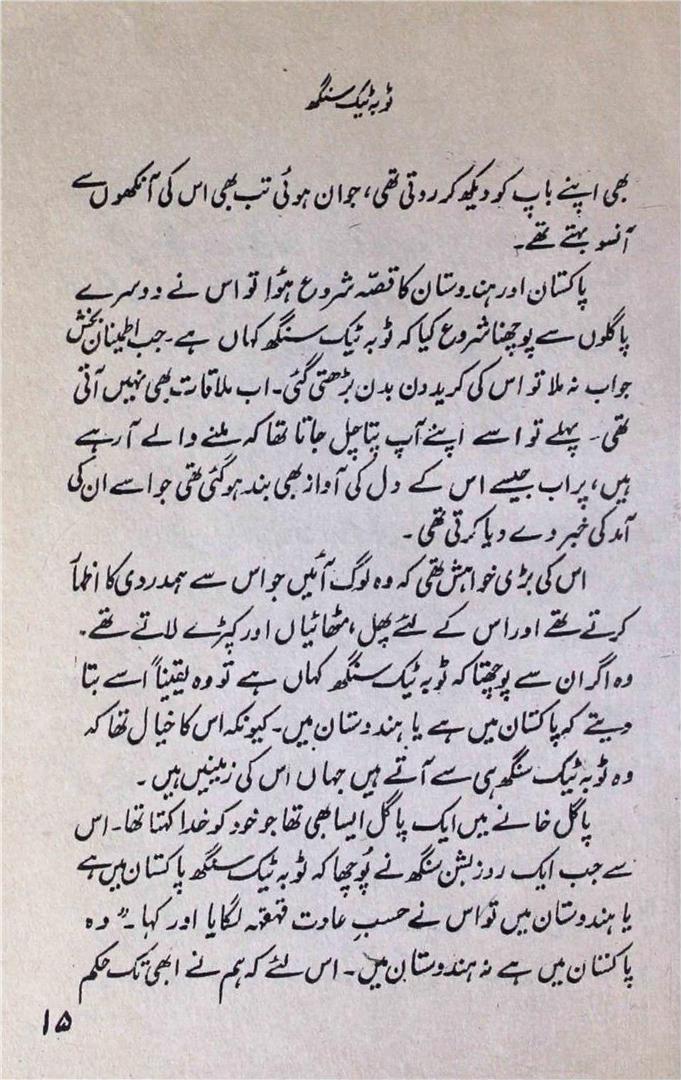 ٹوبہ ٹیک سنگھ
بھی اپنے باپ کو دیکھ کر روتی تھی، جوان ہوئی تب بھی اس کی آنکھوں سے
آنسو بہتے تھے۔
پاکستان اور ہندوستان کا قصّہ شروع ہؤا تو اس نے دوسرے
پاگلوں سے پوچھنا شروع کیا کہ ٹوبہ ٹیک سنگھ کہاں ہے۔ جب اطمینان بخش
جواب نہ ملا تو اس کی کرید دن بدن بڑھتی گئی۔ اب ملاقات بھی نہیں آتی
تھی۔ پہلے تو اسے اپنے آپ پتا چل جاتا تھا کہ ملنے والے آرہے
ہیں، پر اب جیسے اس کے دل کی آواز بھی بند ہوگئی تھی جو اسے ان کی
آمد کی خبر دے دیا کرتی تھی۔
اس کی بڑی خواہش تھی کہ وہ لوگ آئیں جو اس سے ہمدردی کا اظہار
کرتے تھے اور اس کے لئے پھل، مٹھائیاں اور کپڑے لاتے تھے۔
وہ اگر ان سے پوچھتا کہ ٹوبہ ٹیک سنگھ کہاں ہے تو وہ یقیناً اسے بتا
دیتے کہ پاکستان میں ہے یا ہندوستان میں۔ کیونکہ اس کا خیال تھا کہ
وہ ٹوبہ ٹیک سنگھ ہی سے آتے ہیں جہاں اس کی زمینیں ہیں۔
پاگل خانے میں ایک پاگل ایسا بھی تھا جو خود کو خدا کہتا تھا۔ اس
سے جب ایک روز بشن سنگھ نے پُوچھا کہ ٹوبہ ٹیک سنگھ پاکستان میں ہے
یا ہندوستان میں تو اس نے حسبِ عادت قہقہہ لگایا اور کہا۔ "وہ
پاکستان میں ہے نہ ہندوستان میں۔ اس لئے کہ ہم نے ابھی تک حکم
۱۵